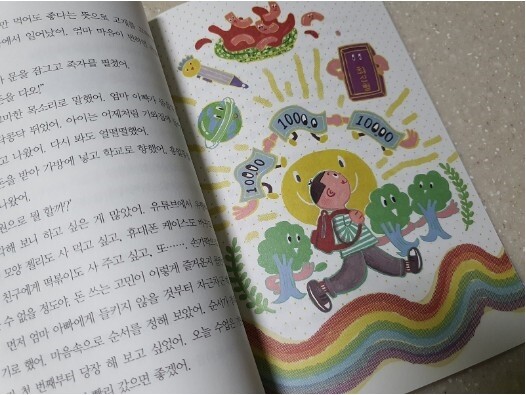 만 먹어도 좋다는 뜻으로 고개를
에서 일어났어. 엄마 마음이
문을 잠그고 족자를 펼쳤어.
다오!"
목소리로 말했어. 엄마 아빠가
뛰었어. 아이는 어제처럼
고 나왔어. 다시 봐도 얼떨떨했어.
돈을 받아 가방에 넣고 학교로 향했어.
나왔어.
원으로 뭘 할까?'
해 보니 하고 싶은 게 많았어. 유튜브에서
모양 젤리도 사 먹고 싶고, 휴대폰 케이스도
친구에게 떡볶이도 사 주고 싶고, 또……
수 없을 정도야. 돈 쓰는 고민이 이렇게 즐거운지
먼저 엄마 아빠에게 들키지 않을 것부터
기로 했어. 마음속으로 순서를 정해 보았어.
첫 번째부터 당장 해 보고 싶었어. 오늘 수업은
빨리 갔으면 좋겠어.
10000
10000
10000